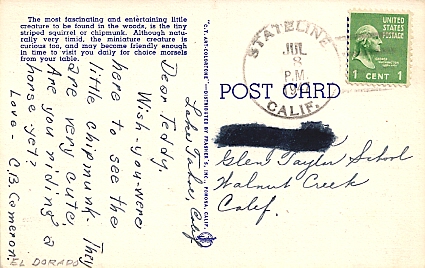 The most fascinating and entertaining little
creature to be found in the woods, is the tiny
striped squirrel or chipmunk. Although natu-
rally very timid, the miniature creature is
curious too, and may become friendly enough
in time to visit you daily for choice morsels
from your table.
Lake Tahoe, Calif
Dear Teddy.
Wish you were
here to see the
little chipmunk. They
are very cute
Are you riding a
horse yet?
Love - C.B. Cameron
EL DORADO
"C.T. ART-COLORTONE"—DISTRIBUTED BY FRASHER'S, INC., POMONA, CALIF.
POST CARD
STATELINE
JUL
8
P.M.
CALIF.
UNITED
STATES
POSTAGE
1 CENT 1
Glen Taylor School
Walnut Creek
Calef.